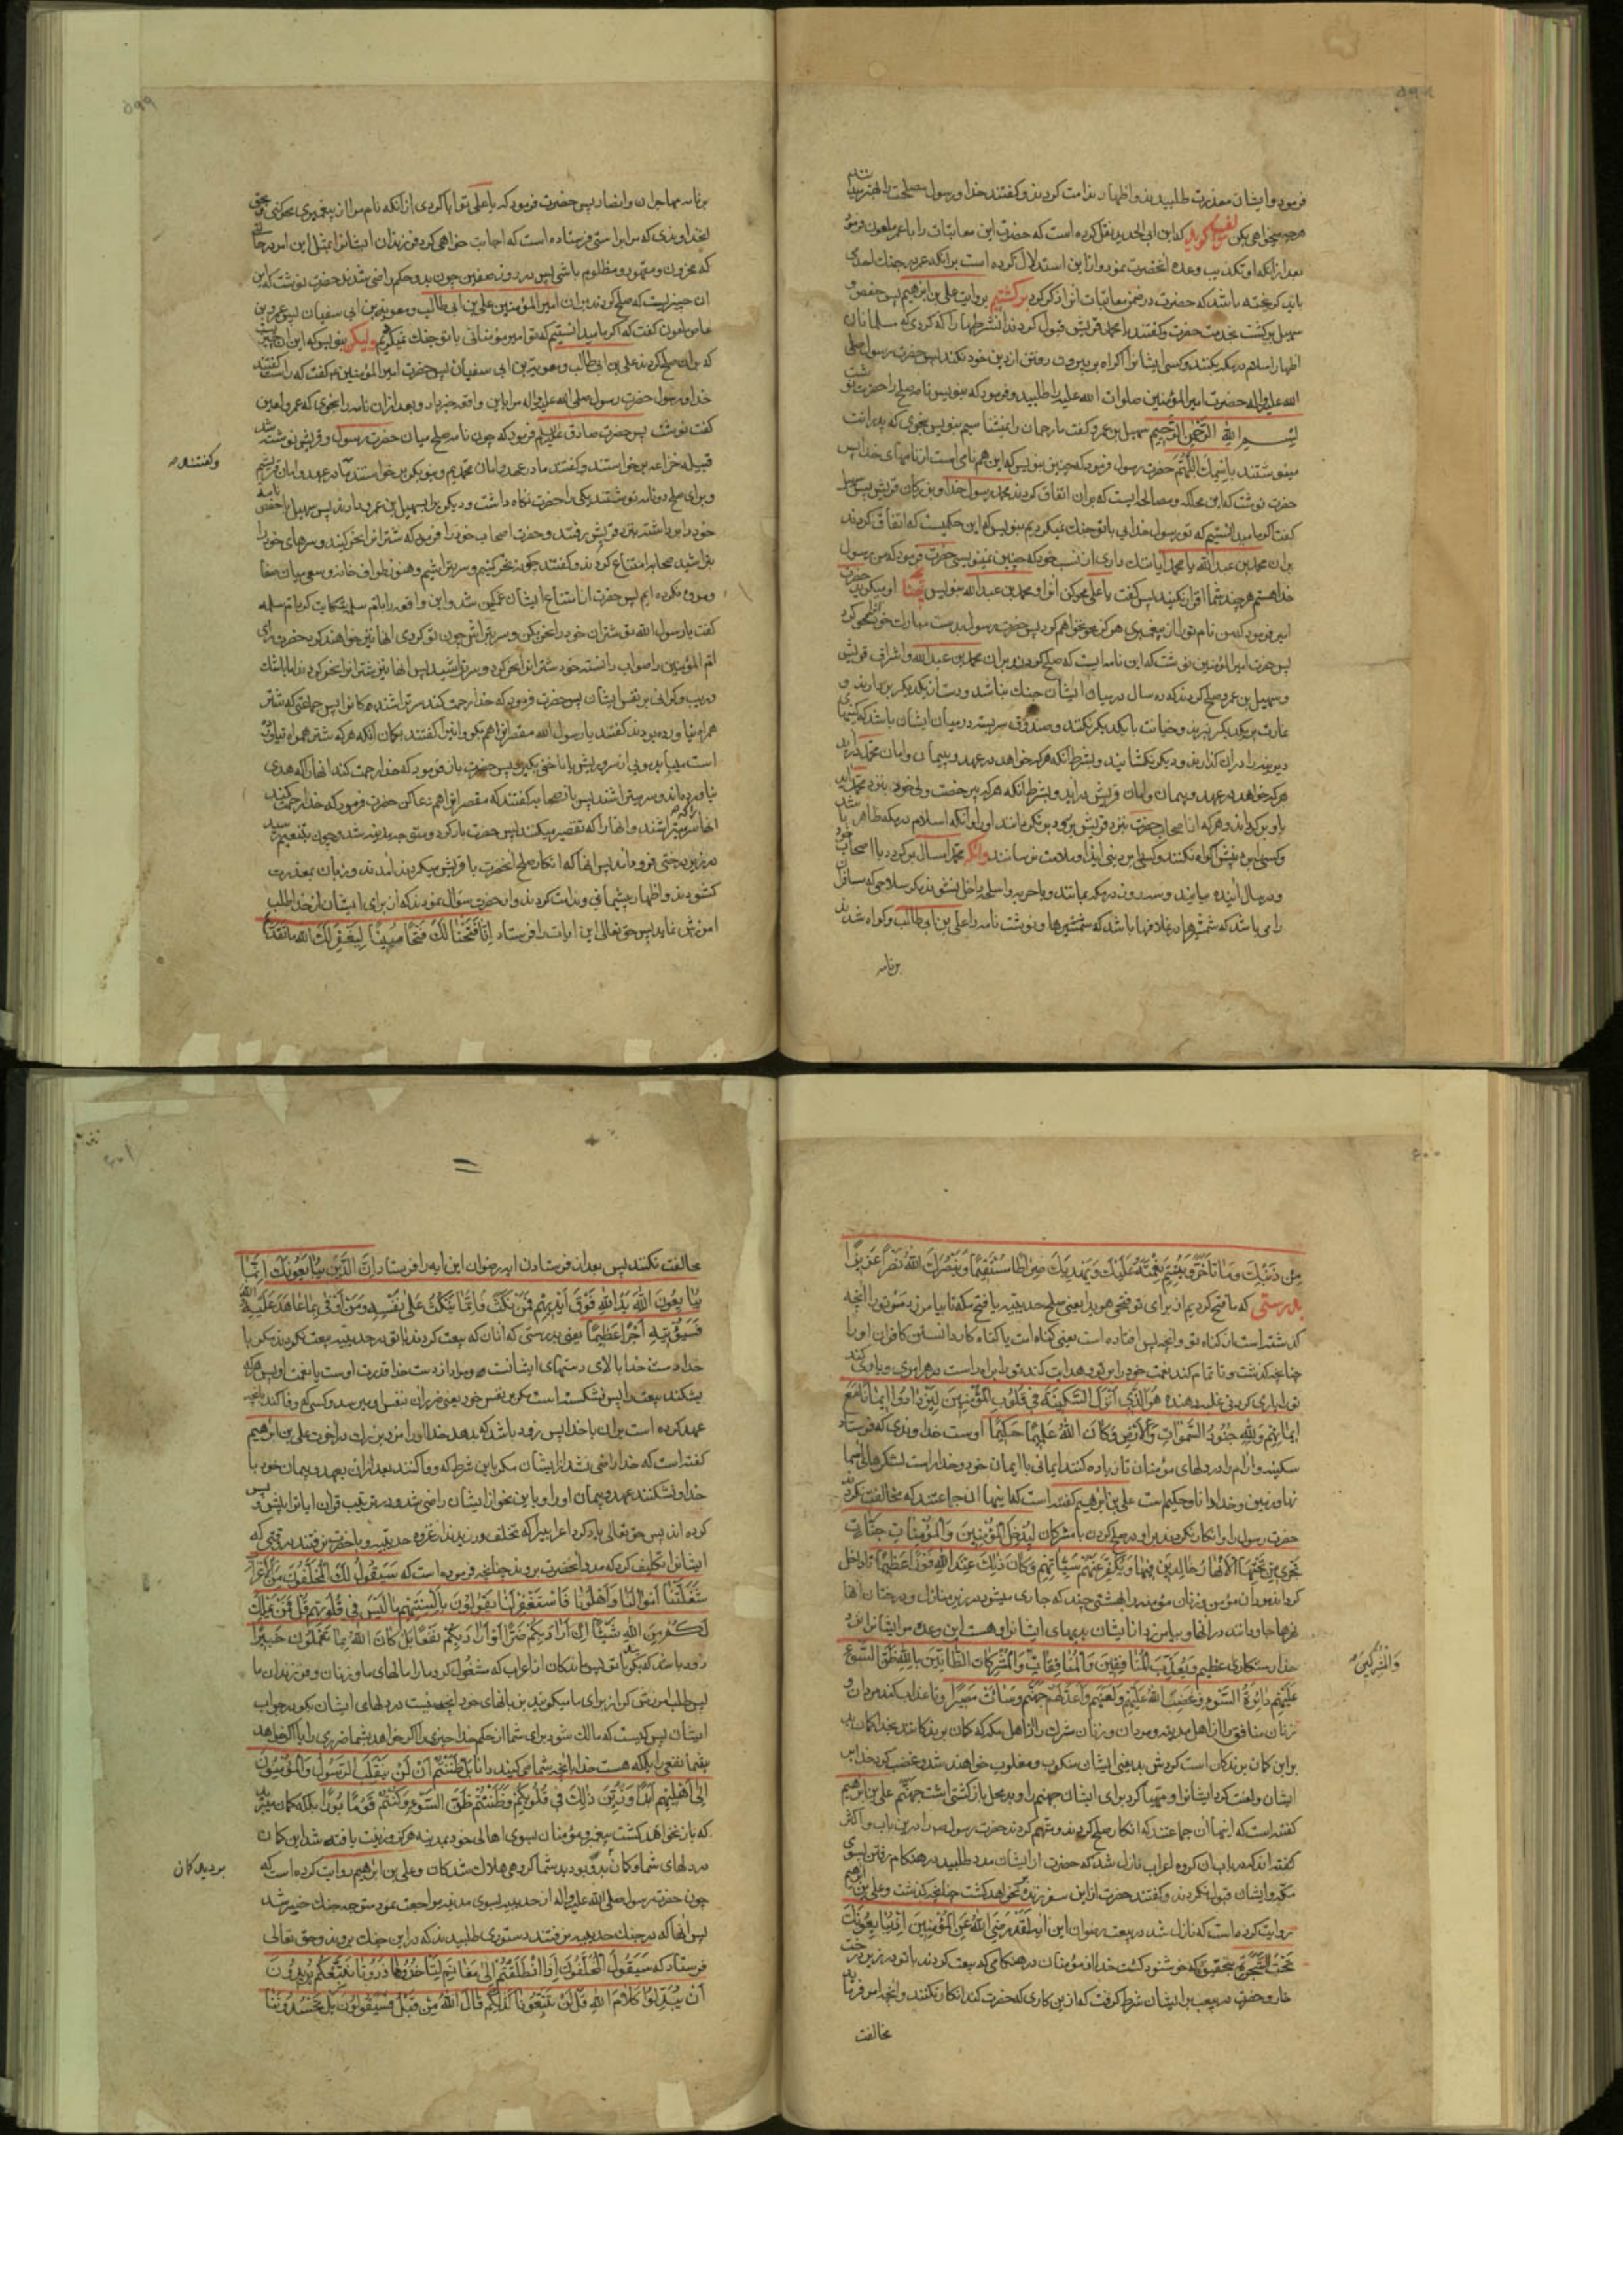 فرمود و ایشان معذرت طلبیدند و اظهار ندامت کردند و گفتند خدا و رسول مصلحت را بهتر میدانند
هرچه میخواهی بکن مؤلف گوید که ابن ابی الحدید نقل کرده است که حضرت این معاتبات را با عمر ملعون فرمود
بعد از آنکه او تکذیب وعده آنحضرت نمود و از این استدلال کرده است بر آنکه عمر در جنگ احد
باید گریخته باشد که حضرت در ضمن معاتبات آنرا ذکر کرد برگشتیم بروایت علی بن ابراهیم پس حفص و
سهیل برگشت بخدمت حضرت و گفتند یا محمد قریش قبول کردند آن شرطها را که کردی که مسلمانان
اظهار اسلام در مکه بکنند و کسی ایشانرا اکراه بر بیرون رفتن از دین خود نکند پس حضرت رسول صلی
الله علیه و اله حضرت امیر المؤمنین صلوات الله علیه را طلبید و فرمود که بنویس نامه صلح را حضرت نوشت
بسم الله الرحمن الرحیم سهیل بن عمرو گفت ما رحمان را نمیشناسیم بنویس بنحوی که پدرانت
مینوشتند باسمك اللهم حضرت رسول فرمود که چنین بنویس که این هم نامی است از نامهای خدا پس
حضرت نوشت که این محاکمه و مصالحه ایست که بر آن اتفاق کردند محمد رسول خدا و بزرگان قریش پس سهیل
گفت اگر ما میدانستیم که تو رسول خدائی با تو جنگ نمیکردیم بنویس که این حکمیست که اتفاق کردند
بر آن محمد بن عبد الله یا محمد آیا ننگ داری از نسب خود که چنین نمینویسی حضرت فرمود که من رسول
خدا هستم هرچند شما اقرار نکنید پس گفت یا علی محو کن آنرا و محمد بن عبد الله بنویس حضرت
امیر فرمود که من نام تو را از پیغمبری هرگز محو نخواهم کرد پس حضرت رسول بدست مبارك خود آنرا محو کرد
پس حضرت امیر المؤمنین نوشت که این نامه ایست که صلح کردند بر آن محمد بن عبد الله و اشراف قریش
و سهیل بن عمرو صلح کردند که ده سال در میان ایشان جنگ نباشد و دست از یکدیگر بردارند و
غارت بر یکدیگر نبرند و خیانت با یکدیگر نکنند و صندوق سربسته در میان ایشان باشد که کینها
دیرینه را در آن گذارند و دیگر نگشایند و بشرط آنکه هرکه خواهد در عهد و پیمان و امان محمد در آید
هرکه خواهد در عهد و پیمان و امان قریش در آید و بشرط آنکه هرکه بی رخصت ولی خود بنزد محمد آید
باو برگرداند و هرکه از اصحاب حضرت بنزد قریش برود برنگردانند او را و آنکه اسلام در مکه ظاهر باشد
و کسی را بر دینش اکراه نکنند و کسی را بر دین ایذا و ملامت نرسانند و آنکه محمد امسال برگردد با اصحاب خود
و در سال آینده بیایند و سه روز در مکه بمانند و با حربه و اسلحه داخل نشوند مگر سلاحی که مسافران
را می باشد که شمشیرها در غلافها باشد که شمشیرها و نوشت نامه را علی بن ابی طالب و گواه شدند
بر نامه
بر نامه مهاجران و انصار پس حضرت فرمود که یا علی تو ابا کردی از آنکه نام مرا از پیغمبری محو کنی بحق
بخداوندی که مرا براستی فرستاده است که اجابت خواهی کرد فرزندان ایشانرا بمثل این امر در حالتی
که محزون و مقهور و مظلوم باشی پس در روز صفین چون بدو حکم راضی شدند حضرت نوشت که این
آن چیزیست که صلح کردند بر آن امیر المؤمنین علی بن ابی طالب و معویة بن ابی سفیان پس عمرو بن
عاص ملعون گفت که اگر ما میدانستیم که تو امیر مؤمنانی با تو جنگ نمیکردیم ولیکن بنویس که این آن چیزیست
که بر آن صلح کردند علی بن ابی طالب و معویة بن ابی سفیان پس حضرت امیر المؤمنین ع گفت که راست گفتند
خدا و رسول حضرت رسول صلی الله علیه و اله مرا باین واقعه خبر داد و بعد از آن نامه را بنحوی که عمرو لعین
گفت نوشت پس حضرت صادق علیه السلم فرمود که چون نامه صلح میان حضرت رسول و قریش نوشته شد
قبیله خزاعه برخواستند و گفتند ما در عهد و امان محمدیم و بنو بکر برخواستند ما در عهد و امان قریشیم
و گفتند
و برای صلح دو نامه نوشتند یکی را حضرت نگاه داشت و دیگری را بسهیل بن عمرو دادند پس سهیل با حفص نامه
خود را برداشتند بنزد قریش رفتند و حضرت اصحاب خود را فرمود که شتران را نحر کنید و سرهای خود را
بتراشید صحابه امتناع کردند و گفتند چگونه نحر کنیم و سر بتراشیم و هنوز طواف خانه و سعی میان صفا
و مروه نکرده ایم پس حضرت از امتناع ایشان غمگین شد و این واقعه را بام سلمه شکایت کرد ام سلمه
گفت یا رسول الله تو شتران خود را نحر کن و سر بتراش چون تو کردی آنها نیز خواهند کرد حضرت رای
ام المؤمنین را صواب دانسته خود شتر را نحر کرد و سر تراشید پس آنها نیز شتران را نحر کردند اما باشك
و ریب و گرانی بر نفس ایشان پس حضرت فرمود که خدا رحمت کند سر تراشندگان را پس جماعتی که شتر
همراه نیاورده بودند گفتند یا رسول الله مقصران را هم بگو و اینرا گفتند بگمان آنکه هرکه شتر همراه نیاورده
است میباید موئی از سر و ریش یا ناخنی بگیرد پس حضرت باز فرمود که خدا رحمت کند آنها را که هدی
نیاورده اند و سر میتراشند پس باز صحابه گفتند که مقصران را هم دعا کن حضرت فرمود که خدا رحمت کند
آنها را که سر میتراشند و آنها را که تقصیر میکنند پس حضرت باز گردد و متوجه مدینه شد و چون بتنعیم رسید
در زیر درختی فرود آمد پس آنها که انکار صلح آنحضرت با قریش میکردند آمدند و زبان بمعذرت
گشودند و اظهار پشیمانی و ندامت کردند و از حضرت سؤال نمودند که از برای ایشان از خدا طلب
آمرزش نماید پس حق تعالی این آیات را فرستاد انا فتحنا لك فتحا مبینا لیغفر لك الله ما تقدم
من ذنبك وما تأخر ویتم نعمته علیك ویهدیك صراطا مستقیما وینصرك الله نصرا عزیزا
بدرستی که ما فتح کردیم از برای تو فتحی هویدا یعنی صلح حدیبیه یا فتح مکه تا بیامرزد مر تو را آنچه
گذشته است از گناه تو و آنچه پس افتاده است یعنی گناه امت یا گناه کار دانستن کافران او را
چنانچه گذشت و تا تمام کند نعمت خود را بر تو و هدایت کند تو را براه راست در هر امری و یاری کند
تو را یاری کردنی غلبه دهنده هو الذی انزل السکینة فی قلوب المؤمنین لیزدادوا ایمانا مع
ایمانهم ولله جنود السموات والارض وکان الله علیما حکیما اوست خداوندی که فرستاد
سکینه و آرام را در دلهای مؤمنان تا زیاده کنند ایمانی با ایمان خود و خدا راست لشکرهای آسما
نها و زمین و خدا دانا و حکیمست علی بن ابراهیم گفته است که اینها آن جماعتند که مخالفت نکردند
حضرت رسول را و انکار نکردند بر او در صلح کردن با مشرکان لیدخل المؤمنین والمؤمنات جنات
تجری من تحتها الانهار خالدین فیها ویکفر عنهم سیئاتهم وکان ذلك عند الله فوزا عظیما تا داخل
گرداند مردان مؤمن و زنان مؤمنه را بهشتی چند که جاری میشود در زیر منازل و درختان آنها
نهرها جاوید مانند در آنها و بیامرزد از ایشان بدیهای ایشانرا و هست این وعده مر ایشانرا نزد
خدا رستگاری عظیم ویعذب المنافقین والمنافقات والمشرکات الظانین بالله ظن السوء
والمشرکین
علیهم دائرة السوء وغضب الله علیهم ولعنهم واعد لهم جهنم وساءت مصیرا و تا عذاب کند مردان و
زنان منافق را از اهل مدینه و مردان و زنان مشرك را از اهل مکه که گمان برندگانند بخدا گمان بد
بر این گمان برندگان است گردش بد یعنی ایشان منکوب و مغلوب خواهند شد و غضب کرد خدا بر
ایشان و لعنت کرد ایشانرا و مهیا کرد برای ایشان جهنم را و بد محل بازگشتی است جهنم علی بن ابراهیم
گفته است که اینها آن جماعتند که انکار صلح کردند و متهم کردند حضرت رسول ص را در این باب و اکثر
گفته اند که در باب آن گروه اعراب نازل شد که حضرت از ایشان مدد طلبید در هنگام رفتن بسوی
مکه و ایشان قبول نکردند و گفتند حضرت از این سفر زنده برنخواهد گشت چنانچه گذشت و علی بن ابراهیم
روایت کرده است که نازل شد در بیعت رضوان این آیه لقد رضی الله عن المؤمنین اذ یبایعونك
تحت الشجرة بتحقیق که خوشنود گشت خدا از مؤمنان در هنگامی که بیعت کردند با تو در زیر درخت
خار و حضرت در بیعت بر ایشان شرط گرفت که از این کاری که حضرت کند انکار نکنند و آنچه امر فرماید
مخالفت
مخالفت نکنند پس بعد از فرستادن آیه رضوان این آیه را فرستاد ان الذین یبایعونك انما
یبایعون الله ید الله فوق ایدیهم فمن نکث فانما ینکث علی نفسه ومن اوفی بما عاهد علیه الله
فسیؤتیه اجرا عظیما یعنی بدرستی که آنان که بیعت کردند با تو در حدیبیه بیعت نکردند مگر با
خدا دست خدا بالای دستهای ایشانست و مراد از دست خدا قدرت اوست یا نعمت او پس هرکه
بشکند بیعت را پس نشکسته است مگر بر نفس خود یعنی ضرر آن بنفس او میرسد و کسی که وفا کند بآنچه
عهد کرده است بر آن با خدا پس زود باشد که بدهد خدا او را مزد بزرك در آخرت علی بن ابراهیم
گفته است که خدا راضی نشد از ایشان مگر باین شرط که وفا کنند بعد از آن بعهد و پیمان خود با
خدا و نشکنند عهد و پیمان او را و باین نحو از ایشان راضی شد و در ترتیب قران آیاترا پیش و پس
کرده اند پس حق تعالی یاد کرد اعرابیرا که تخلف ورزیدند از غزوه حدیبیه و با حضرت نرفتند در وقتی که
ایشانرا تکلیف کرد که مدد آنحضرت بروند چنانچه فرموده است که سیقول لك المخلفون من الاعراب
شغلتنا اموالنا واهلونا فاستغفر لنا یقولون بالسنتهم ما لیس فی قلوبهم قل فمن یملك
لکم من الله شیئا ان اراد بکم ضرا او اراد بکم نفعا بل کان الله بما تعملون خبیرا
زود باشد که بگویند با تو پس ماندگان از اعراب که مشغول کرد ما را مالهای ما و زنان و فرزندان ما
پس طلب آمرزش کن از برای ما میگویند بزبانهای خود آنچه نیست در دلهای ایشان بگو در جواب
ایشان پس کیست که مالك شود برای شما از حکم خدا چیزی را اگر خواهد بشما ضرری را یا اگر خواهد
بشما نفعی را بلکه هست خدا بآنچه شما میکنید دانا بل ظننتم ان لن ینقلب الرسول والمؤمنون
الی اهلیهم ابدا وزین ذلك فی قلوبکم وظننتم ظن السوء وکنتم قوما بورا بلکه گمان میبردید
که باز نخواهد گشت پیغمبر و مؤمنان بسوی اهالی خود بمدینه هرگز و زینت یافته شد این گمان
در دلهای شما و گمان بد و بودید شما گروهی هلاك شدگان و علی بن ابراهیم روایت کرده است که
بردید گمان
چون حضرت رسول صلی الله علیه و اله از حدیبیه بسوی مدینه مراجعت نمود متوجه جنك خیبر شد
پس آنها که در جنك حدیبیه نرفتند دستوری طلبیدند که در این جنك بروند و حق تعالی
فرستاد که سیقول المخلفون اذا انطلقتم الی مغانم لتاخذوها ذرونا نتبعکم یریدون
ان یبدلوا کلام الله قل لن تتبعونا کذلکم قال الله من قبل فسیقولون بل تحسدوننا